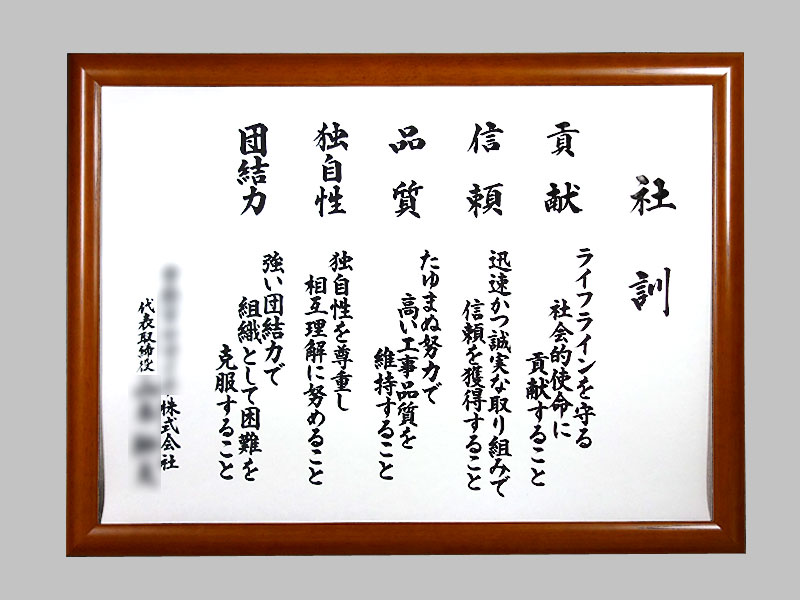 社訓
貢献
ライフラインを守る
社会的使命に
貢献すること
信頼
迅速かつ誠実な取り組みで
信頼を獲得すること
品質
たゆまぬ努力で
高い工事品質を
維持すること
独自性
独自性を尊重し
相互理解に努めること
団結力
強い団結力で
組織として困難を
克服すること
株式会社
代表取締役